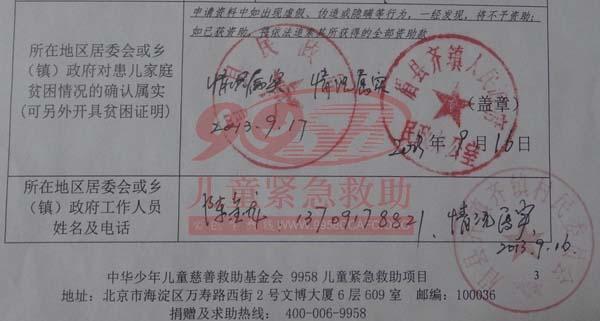 申请资料中如出现虚假、伪造或隐瞒等行为，一经发现，将不予资助；
如已获资助，将依法追索其所获得的全部资助款
所在地区居委会或乡
（镇）政府对患儿家庭
贫困情况的确认属实
(可另外开具贫困证明)
情况属实
2013.9.17
情况属实
（盖章）
2013年9月16日
眉县齐镇人民政府
9958
儿童紧急救助
所在地区居委会或乡
（镇）政府工作人员
姓名及电话
13709178821
情况属实
2013.9.16
中华少年儿童慈善救助基金会 9958 儿童紧急救助项目
3
地址：北京市海淀区万寿路西街 2 号文博大厦 6 层 609 室 邮编：100036
捐赠及求助热线： 400-006-9958